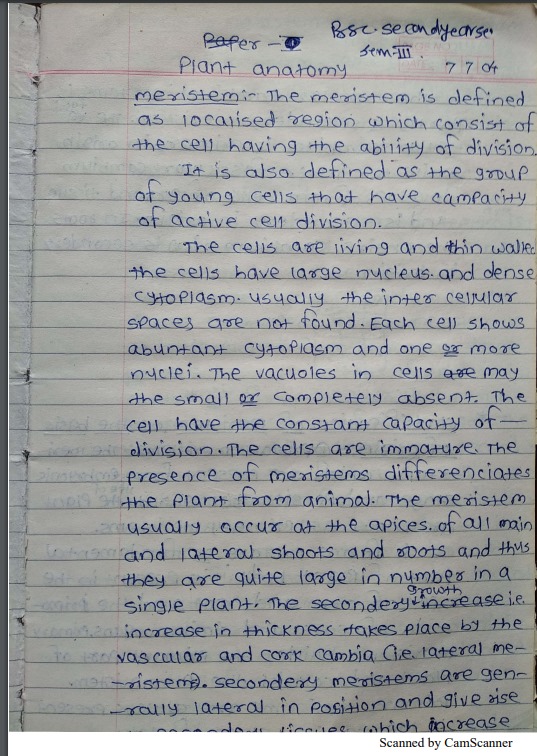 Paper - I
Bsc. second year se.
sem-III.
Plant anatomy
7 7 04
meristem:- The meristem is defined
as localised region which consist of
the cell having the ability of division.
It is also defined as the group
of young cells that have campacity
of active cell division.
The cells are living and thin walled
the cells have large nucleus. and dense
cytoplasm. usually the inter cellular
spaces are not found. Each cell shows
abuntant cytoplasm and one or more
nuclei. The vacuoles in cells are may
the small or completely absent. The
cell have the constant capacity of —
division. The cells are immature. The
presence of meristems differenciates
the plant from animal. The meristem
usually occur at the apices. of all main
and lateral shoots and roots and thus
they are quite large in number in a
single plant. The secondery growth increase i.e.
increase in thickness takes place by the
vascular and cork cambia (i.e. lateral me-
-ristem). secondery meristems are gen-
-rally lateral in position and give rise
secondary tissues which increase
Scanned by CamScanner